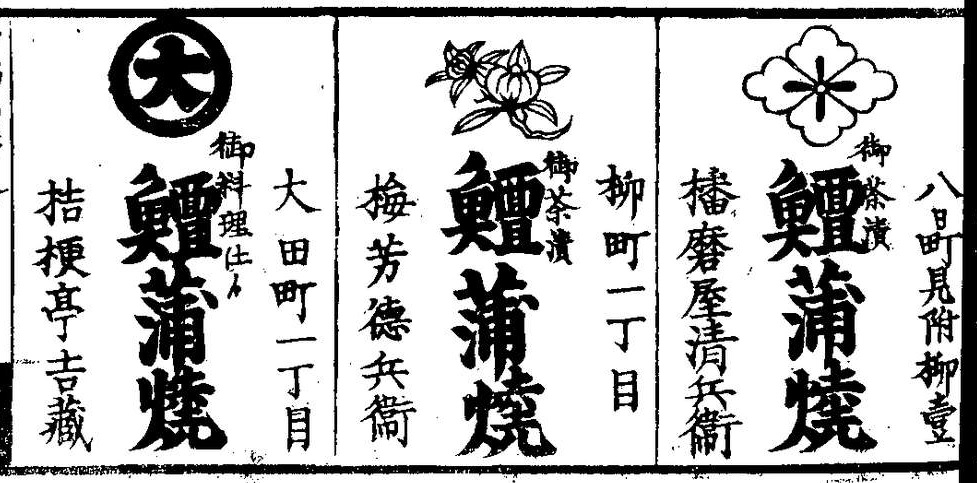 八日町見附柳壹
御茶漬
鱣蒲燒
播磨屋清兵衛
柳町一丁目
御茶漬
鱣蒲燒
梅芳徳兵衛
大田町一丁目
大
御料理仕
鱣蒲燒
桔梗亭吉藏